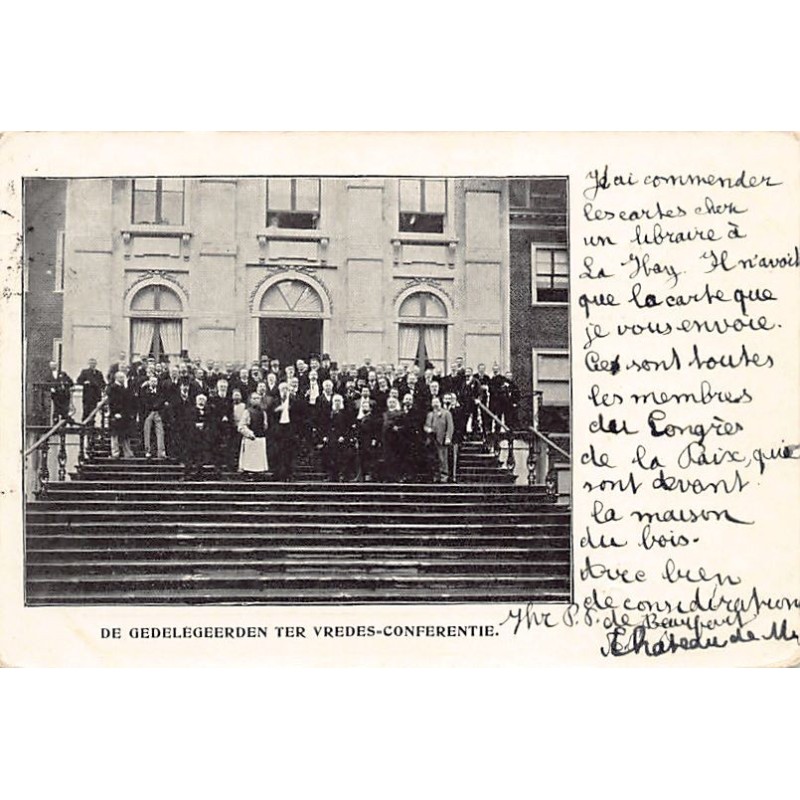 DE GEDELEGEERDEN TER VREDES-CONFERENTIE.
J'ai commender
les cartes chez
un libraire à
La Hay. Il n'avait
que la carte que
je vous envoie.
Ce sont toutes
les membres
du Congrès
de la Paix, qui
sont devant
la maison
du bois.
Avec bien
de considération
Jhr P. F. de Beaufort
Château de